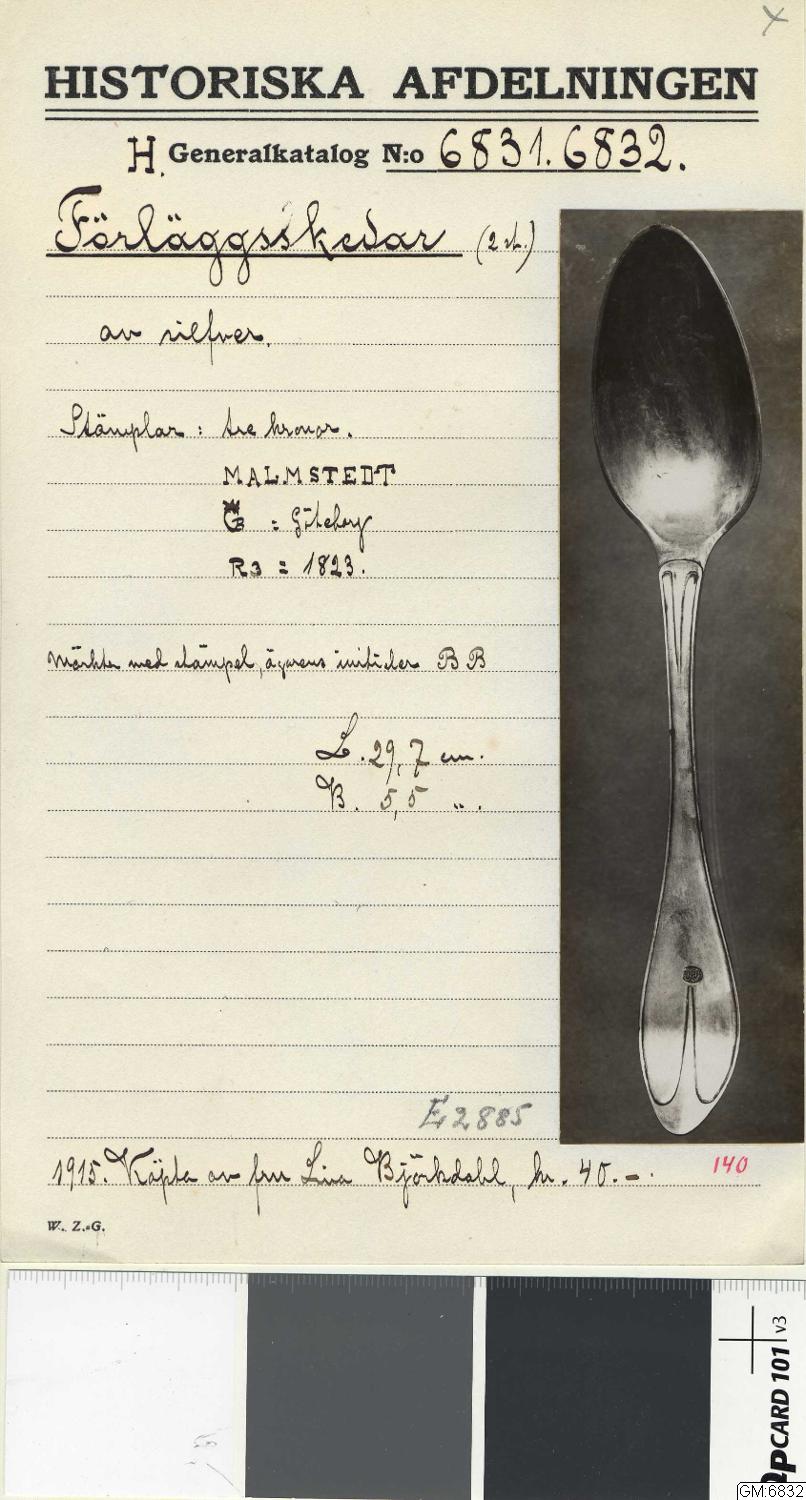 HISTORISKA AFDELNINGEN
H. Generalkatalog N:o 6831. 6832.
Förläggsskedar (2 st.)
av silfver.
Stämplar : tre kronor.
MALMSTEDT
GB = Göteborg
R3 = 1823.
Märkta med stämpel, ägarens initialer B B
L. 29,7 cm.
B. 5,5 „ .
E 2885
1915. Köpta av fru Lina Björkdahl, kr. 40.-.
140
W. Z.-G.
QPCARD 101 v3
GM:6832